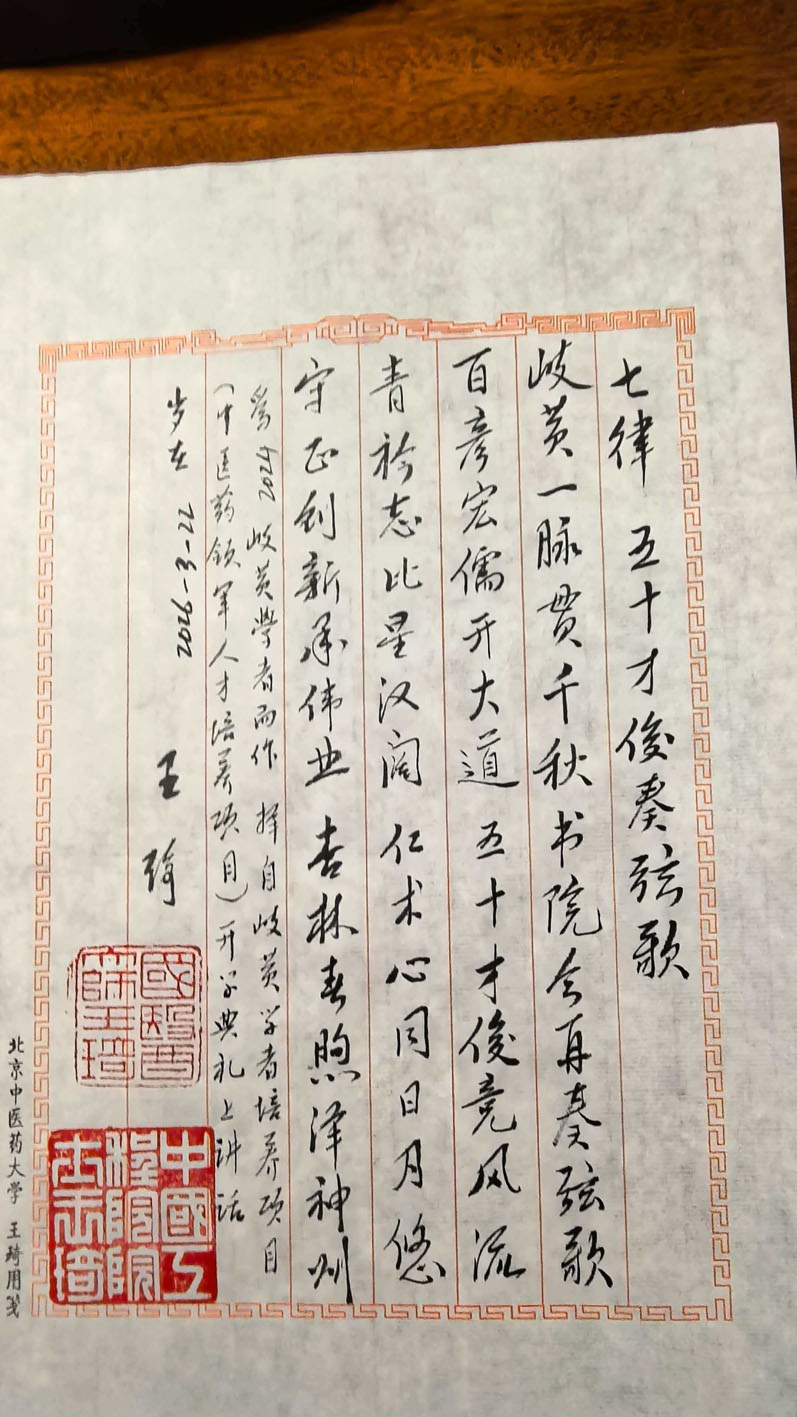 七律 五十才俊奏弦歌
岐黄一脉贯千秋书院今再奏弦歌
百彦宏儒开大道 五十才俊竞风流
青衿志比星汉阔 仁术心同日月悠
守正创新承伟业 杏林春煦泽神州
为2024岐黄学者而作 择自岐黄学者培养项目
(中医药领军人才培养项目)开学典礼上讲话
岁在 2026-3-22 王琦
國醫大師王琦
中國工程院院士王琦
北京中医药大学 王琦用笺